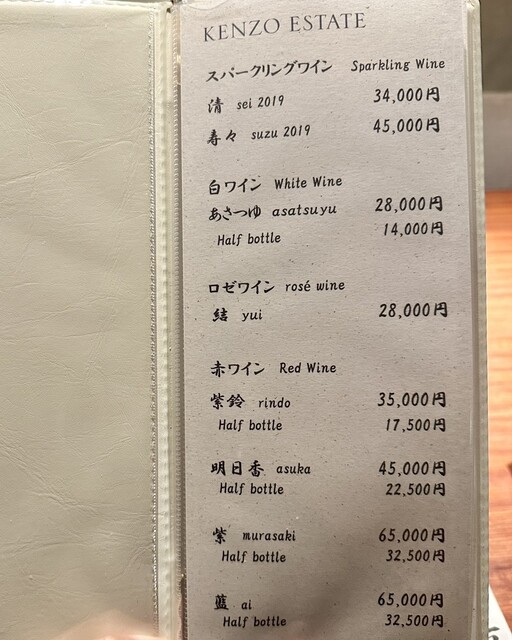 KENZO ESTATE
スパークリングワイン Sparkling Wine
清 sei 2019 34,000円
寿々 suzu 2019 45,000円
白ワイン White Wine
あさつゆ asatsuyu 28,000円
Half bottle 14,000円
ロゼワイン rosé wine
結 yui 28,000円
赤ワイン Red Wine
紫鈴 rindo 35,000円
Half bottle 17,500円
明日香 asuka 45,000円
Half bottle 22,500円
紫 murasaki 65,000円
Half bottle 32,500円
藍 ai 65,000円
Half bottle 32,500円